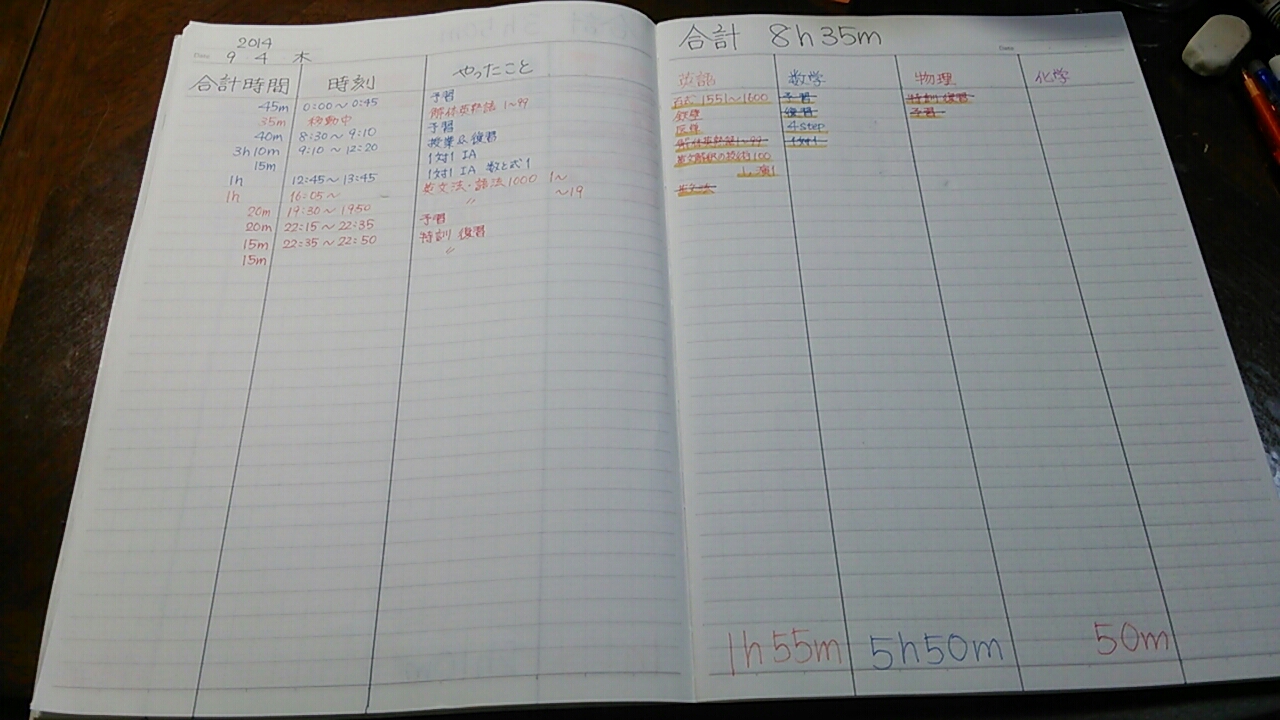 2014
Date 9 4 木
合計時間 時刻 やったこと
45m 0:00〜0:45 予習
35m 移動中 解体英熟語 1〜99
40m 8:30〜9:10 予習
3h10m 9:10〜12:20 授業&復習
15m 1対1 IA
1h 12:45〜13:45 1対1 IA 数と式1
1h 16:05〜 英文法・語法1000 1〜
20m 19:30〜1950 〃 〜19
20m 22:15〜22:35 予習
15m 22:35〜22:50 特訓 復習
15m 〃
合計 8h35m
Date
英語 数学 物理 化学
1551〜1600 予習 特訓 復習
鉄壁 復習 予習
4step
解体英熟語1〜99 1対1
英文解釈の技術100
英文法
1h55m 5h50m 50m